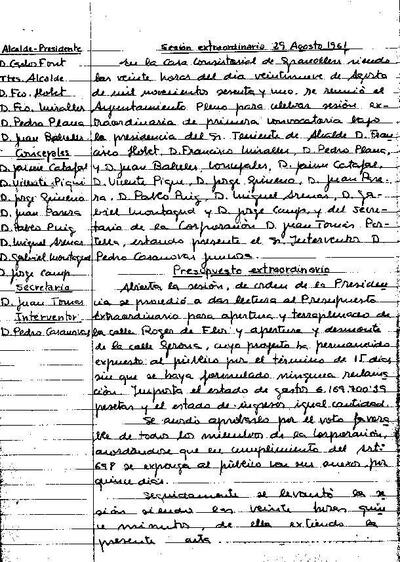 Alcalde-Presidente
D. Carlos Font
Ttes. Alcalde
D. Fco. Llobet
D. Fco. Miralles
D. Pedro Plana
D. Juan Babeles
Concejales
D. Jaime Catafal
D. Vicente Piqué
D. Jorge Guineno
D. Juan Parera
D. Pablo Puig
D. Miguel Arenas
D. Gabriel Montagud
D. Jorge Camp
Secretario
D. Juan Tomas
Interventor
D. Pedro Casanovas
Sesión extraordinario 29 Agosto 1961
En la Casa Consistorial de Granollers siendo
las veinte horas del dia veintinueve de Agosto
de mil novecientos sesenta y uno, se reunió el
Ayuntamiento Pleno para celebrar sesión ex-
traordinaria de primera convocatoria bajo
la presidencia del Sr. Teniente de Alcalde D. Fran
cisco Llobet, D. Francisco Miralles, D. Pedro Plana,
y D. Juan Babeles, Concejales, D. Jaime Catafal,
D. Vicente Piqué, D. Jorge Guineno, D. Juan Pare-
ra, D. Pablo Puig, D. Miguel Arenas, D. Ga-
briel Montagud y D. Jorge Camp, y del Secre-
tario de la Corporación D. Juan Tomas Por-
tella, estando presente el Sr. Interventor D.
Pedro Casanovas
Presupuesto extraordinario
Abierta la sesión, de orden de la Presiden
cia se procedió a dar lectura al Presupuesto
extraordinario para apertura y terraplenado de
la calle Roger de Flor y apertura y desmonte
de la calle Gerona, cuyo proyecto ha permanecido
expuesto al público por el término de 15 dias
sin que se haya formulado ninguna reclama
ción. Importa el estado de gastos 6.169.700'39
pesetas y el estado de ingresos igual cantidad.
Se acordó aprobarlo por el voto favora
ble de todos los miembros de la Corporación,
acordándose que en cumplimiento del arto
698 se exponga al público con sus anexos por
quince dias.
Seguidamente se levantó la se
sión siendo las veinte horas quin
ce minutos, de ella extiendo la
presente acta.